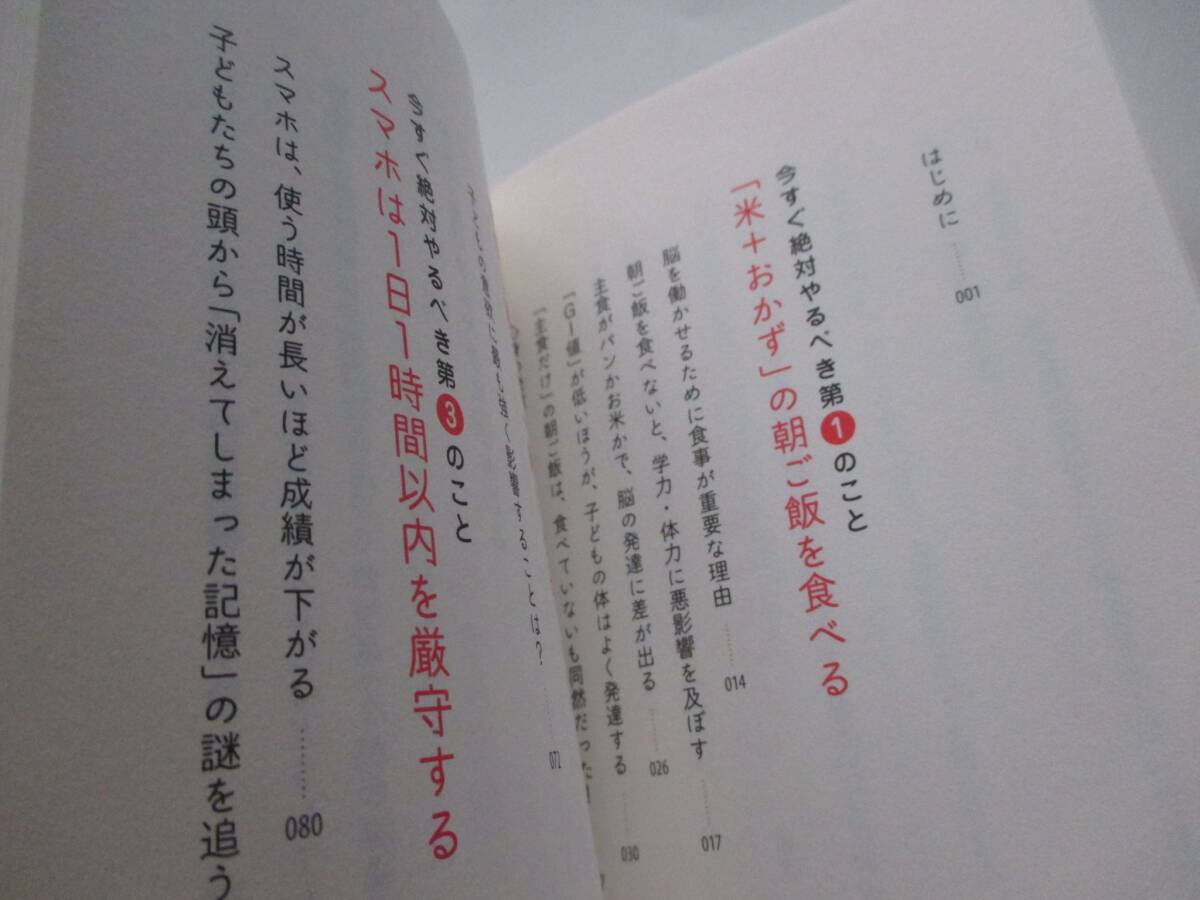 はじめに 001
今すぐ絶対やるべき第1のこと
「米+おかず」の朝ご飯を食べる
脳を働かせるために食事が重要な理由 014
朝ご飯を食べないと、学力・体力に悪影響を及ぼす 017
主食がパンかお米かで、脳の発達に差が出る 026
「GI値」が低いほうが、子どもの体はよく発達する 030
「主食だけ」の朝ご飯は、食べていないも同然だった
子どもの に最も強く影響することは? 072
今すぐ絶対やるべき第3のこと
スマホは1日1時間以内を厳守する
スマホは、使う時間が長いほど成績が下がる 080
子どもたちの頭から「消えてしまった記憶」の謎を追う